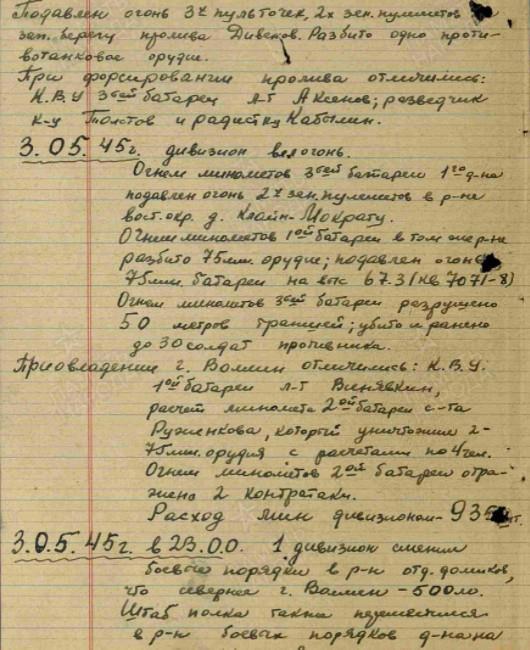 Подавлен огонь 3х пульточек, 2х зен. пулеметов
зап. берегу пролива Дивенов. Разбито одно проти-
вотанковое орудие.
При форсировании пролива отличились:
К.В.У 3ей батареи л-т Аксенов; разведчик
к-ц Толстов и радист кр. Кабылин.
3.05.45г. дивизион вел огонь.
Огнем минометов 3ей батареи 1го д-на
подавлен огонь 2х зен. пулеметов в р-не
вост. окр. д. Клайн-Мократу.
Огнем минометов 1ой батареи в том же р-не
разбито 75мм. орудие; подавлен огонь
75мм. батареи на выс 67.3 (кв 7071-8)
Огнем минометов 3ей батареи разрушено
50 метров траншей; убито и ранено
до 30 солдат противника.
При овладении г. Волин отличились: К.В.У.
1ой батареи л-т Винявкин,
расчет миномета 2ой батареи с-та
Руженкова, который уничтожил 2-
75мм. орудия с расчетами по 4 чел.
Огнем минометов 2ой батареи отра-
жено 2 контратаки.
Расход мин дивизионом - 93 шт.
3.05.45г. в 23.00. 1 дивизион сменил
боевые порядки в р-н отд. домиков,
что севернее г. Волин - 500м.
Штаб полка также переместился
в р-н боевых порядков д-на на